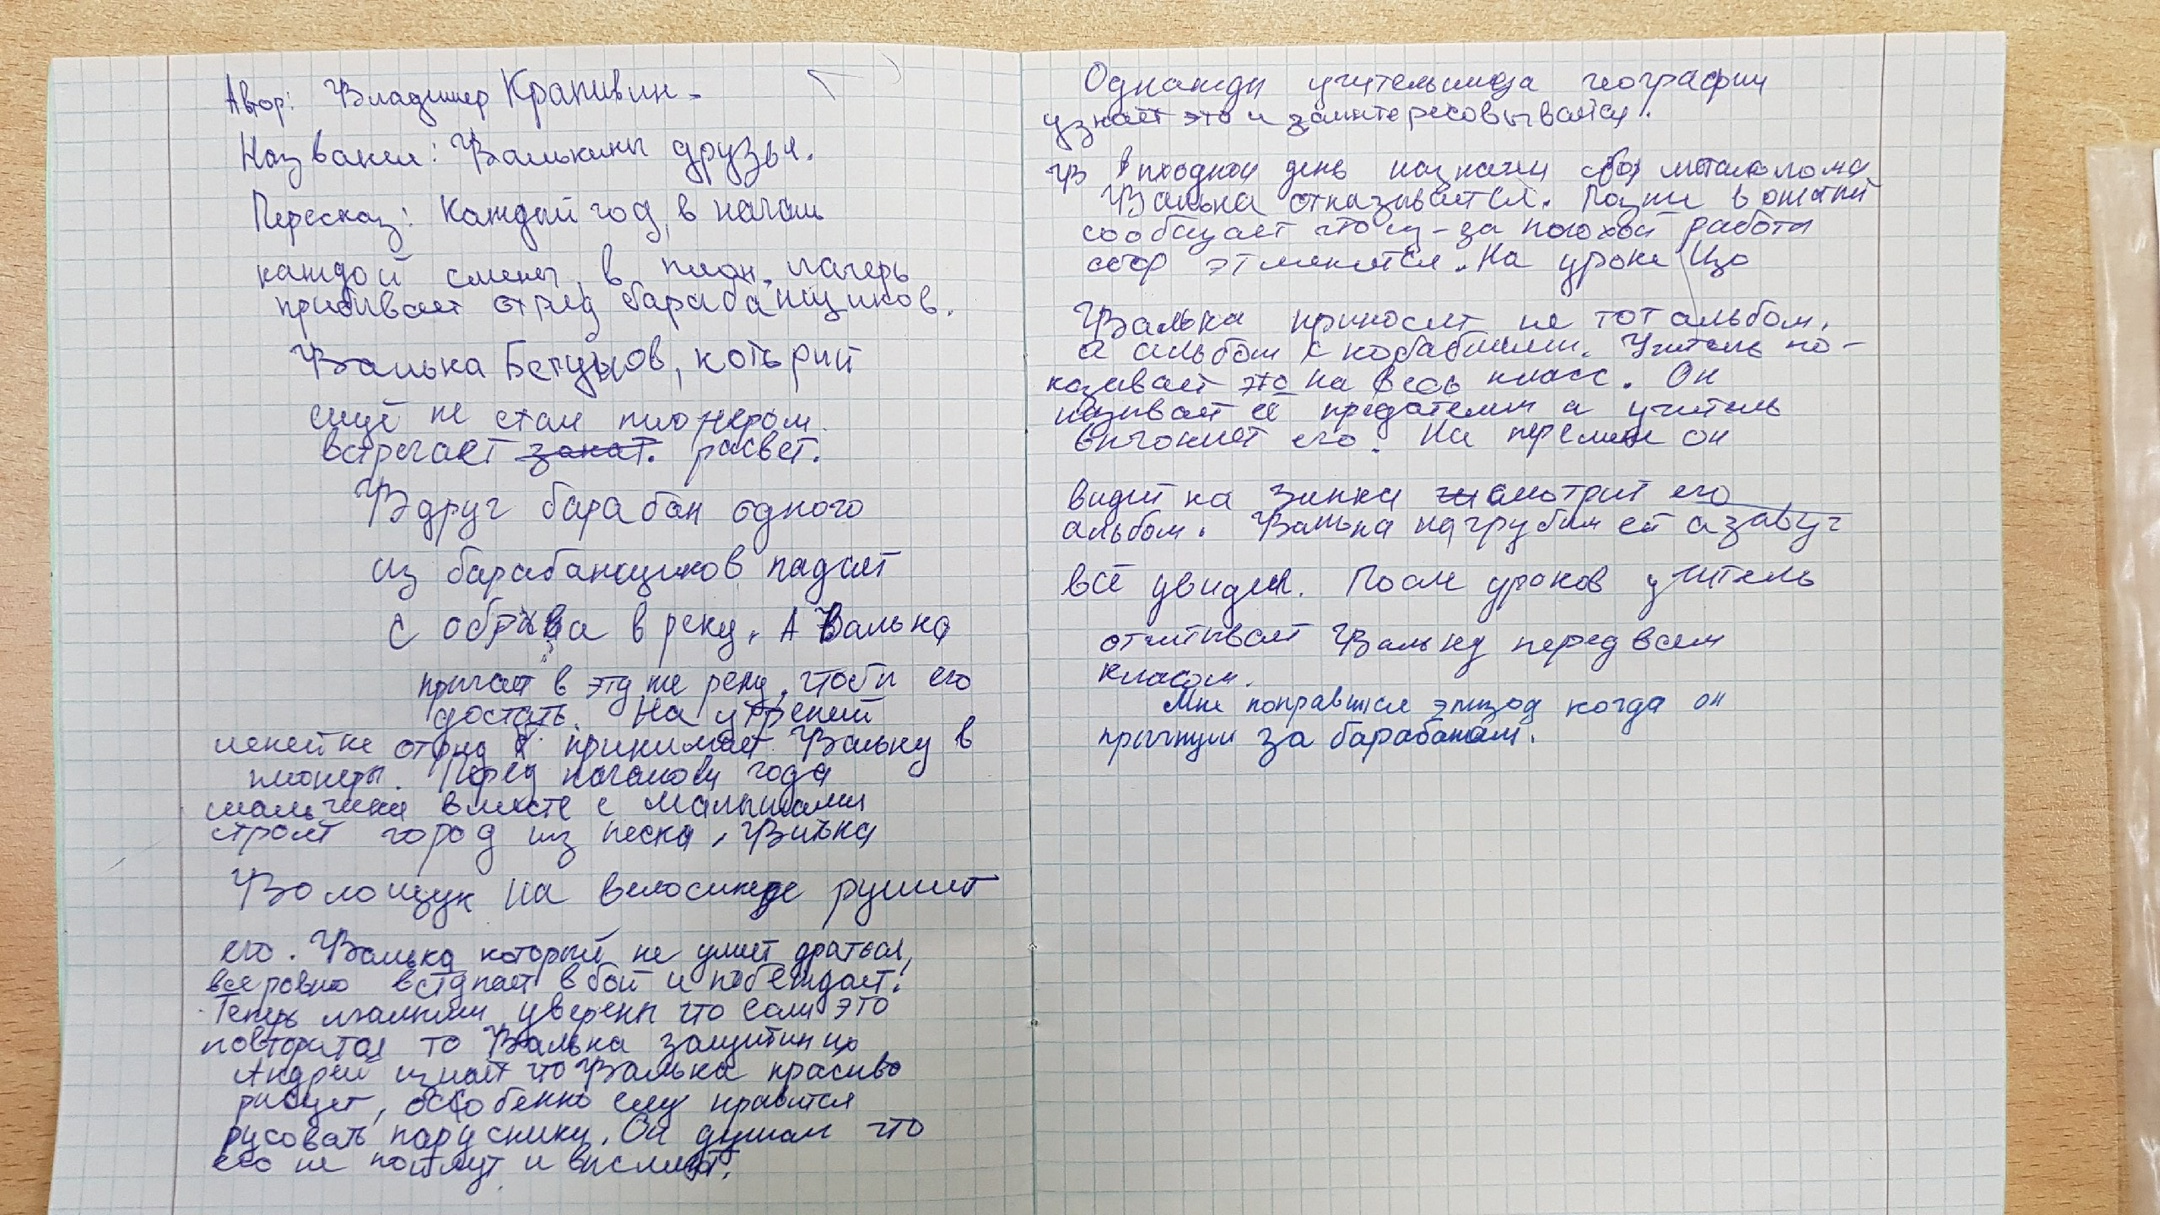 Автор: Владимер Крапивин.
Название: Валькины друзья.
Пересказ: Каждый год, в начале
каждой смены, в пион. лагерь
прибывает отряд барабанщиков.
Валька Бегунов, который
ещё не стал пионером
встречает закат. расвет.
Вдруг барабан одного
из барабанщиков падает
с обрыва в реку. А Валька
прыгает в эту же реку, чтобы его
достать. На утреней
иенейке отряд принимает Вальку в
пионеры. Перед началом года
мальчики вместе с малышами
строят город из песка, Витька
Волощук на велосипеде рушит
его. Валька который не умеет драться,
всёровно вступает в бой и побеждает!
Теперь малыши уверены что если это
повторится то Валька защитин их
Андрей узнаёт что Валька красиво
рисует, особенно ему нравится
русовать парусники. Он думал что
его не поймут и высмеют.
Однажды учительница географии
узнаёт это и заинтересовывается.
В входной день назначен сбор металолома
Валька отказывается. Позже вожатый
сообщает что из-за плохой работы
сбор этменяется. На уроке Изо
Валька приносит не тот альбом,
а альбом с кораблями. Учитель по-
казывает это на весь класс. Он
называет её предателем а учитель
выгоняет его. На перемене он
видит ка Зинка смотрит его
альбом. Валька нагрубил ей а завуч
всё увидел. После уроков учитель
отчитывает Вальку перед всем
класом.
Мне понравился эпизод когда он
прыгнул за барабаном.